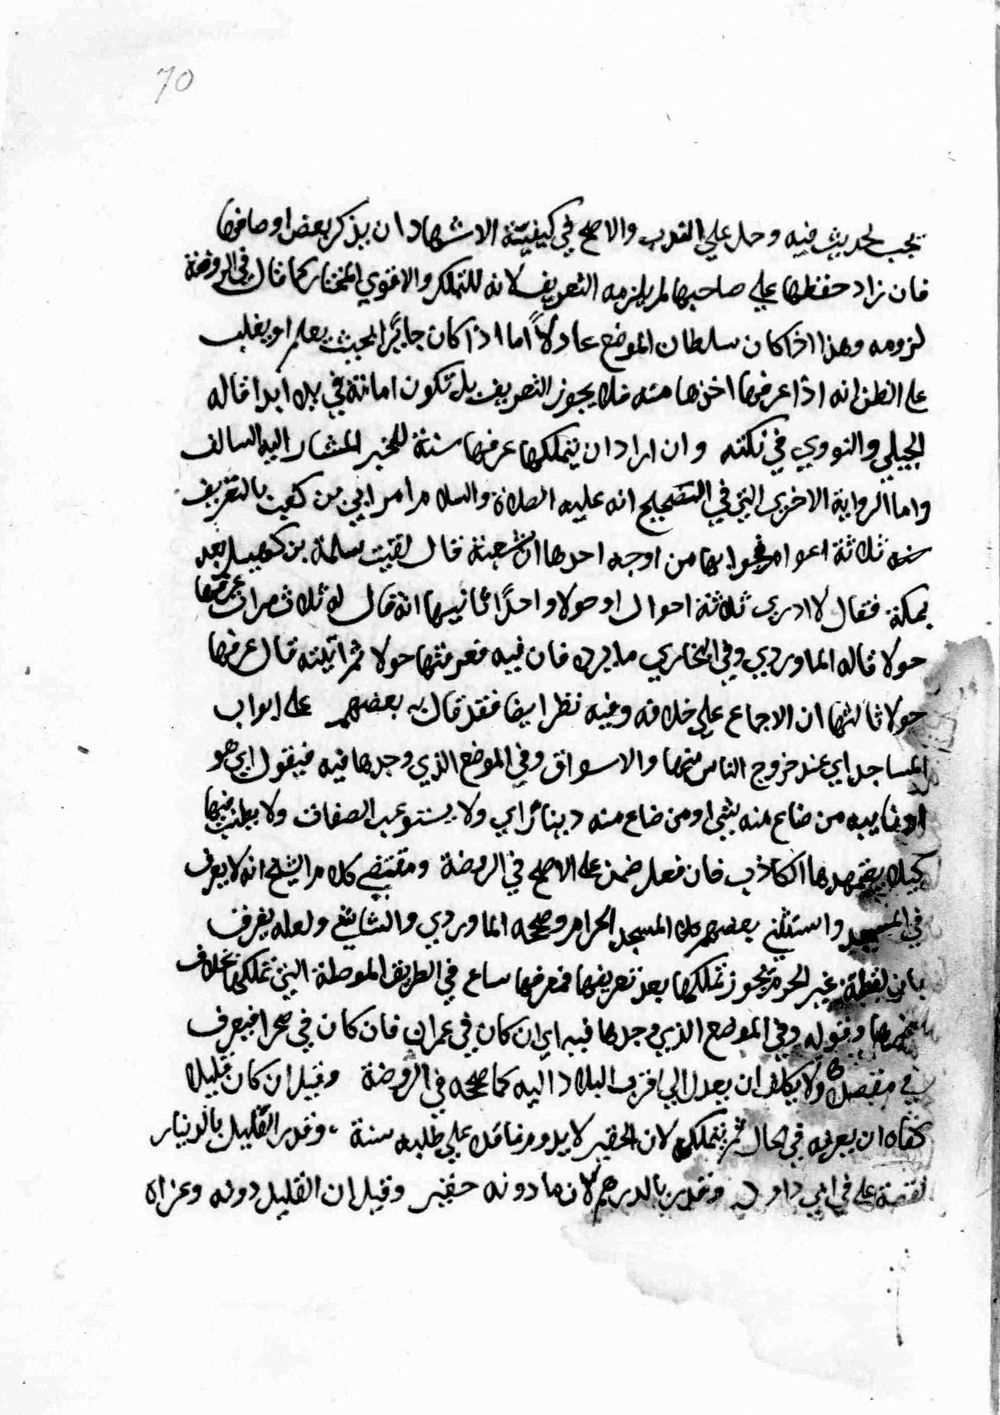 70
يجب لحديث فيه وحمل علي الندب والاصح في كيفية الاشهاد ان يذكر بعض اوصافها
فان زاد حفظها علي صاحبها لم يلزمه التعريف لانه للتملك والاقوي المختار كما قال في الروضة
لزومه وهذا اذا كان سلطان الموضع عادلا اما اذا كان جايرا بحيث يعلم او يغلب
علي الظن انه اذا عرفها اخذها منه فلا يجوز التعريف بل تكون امانة في يده ابدا قاله
الجيلي والنووي في نكته وان اراد ان يتملكها عرفها سنة للخبر المشار اليه السالف
واما الرواية الاخري التي في الصحيح انه عليه الصلاة والسلام امر ابي بن كعب بالتعريف
ثلاثة اعوام فجوابها من اوجه احدها ان شعبة قال لقيت سلمة بن كهيل بعد
بمكة فقال لا ادري ثلاثة احوال او حولا واحدا ثانيها انه قال له ثلاث مرات عرفها
حولا قاله الماوردي وفي البخاري ما يرده فان فيه فعرفتها حولا ثم اتيته فقال عرفها
حولا ثالثها ان الاجماع علي خلافه وفيه نظر ايضا فقد قال به بعضهم علي ابواب
المساجد اي عند خروج الناس منها والاسواق وفي الموضع الذي وجدها فيه فيقول اي هو
او نايبه من ضاع منه شي او من ضاع منه دينار اي ولا يستوعب الصفات ولا يطنب فيها
كيلا يعتمدها الكاذب فان فعل ضمن علي الاصح في الروضة ومقتضي كلام الشيخ انه لا يعرف
في المسجد واستثني بعضهم المسجد الحرام وصححه الماوردي والشاشي ولعله يفرق
بان لقطة غير الحرم يجوز تملكها بعد تعريفها فتعريفها ساع في الطريق الموصلة التي تملكها بخلاف
وقوله وفي الموضع الذي وجدها فيه اي ان كان في عمران فان كان في صحرا فيعرف
في مقصده ولا يكلف ان يعدل الي اقرب البلاد اليه كما صححه في الروضة وقيل ان كان قليلا
كفاه ان يعرفه في الحال ثم يتملك لان الحقير لا يدوم فاقده علي طلبه سنة وقدر القليل بالدينار
لقصة علي في ابي داود وقدر بالدرهم لان ما دونه حقير وقيل ان القليل دونه وعزاه